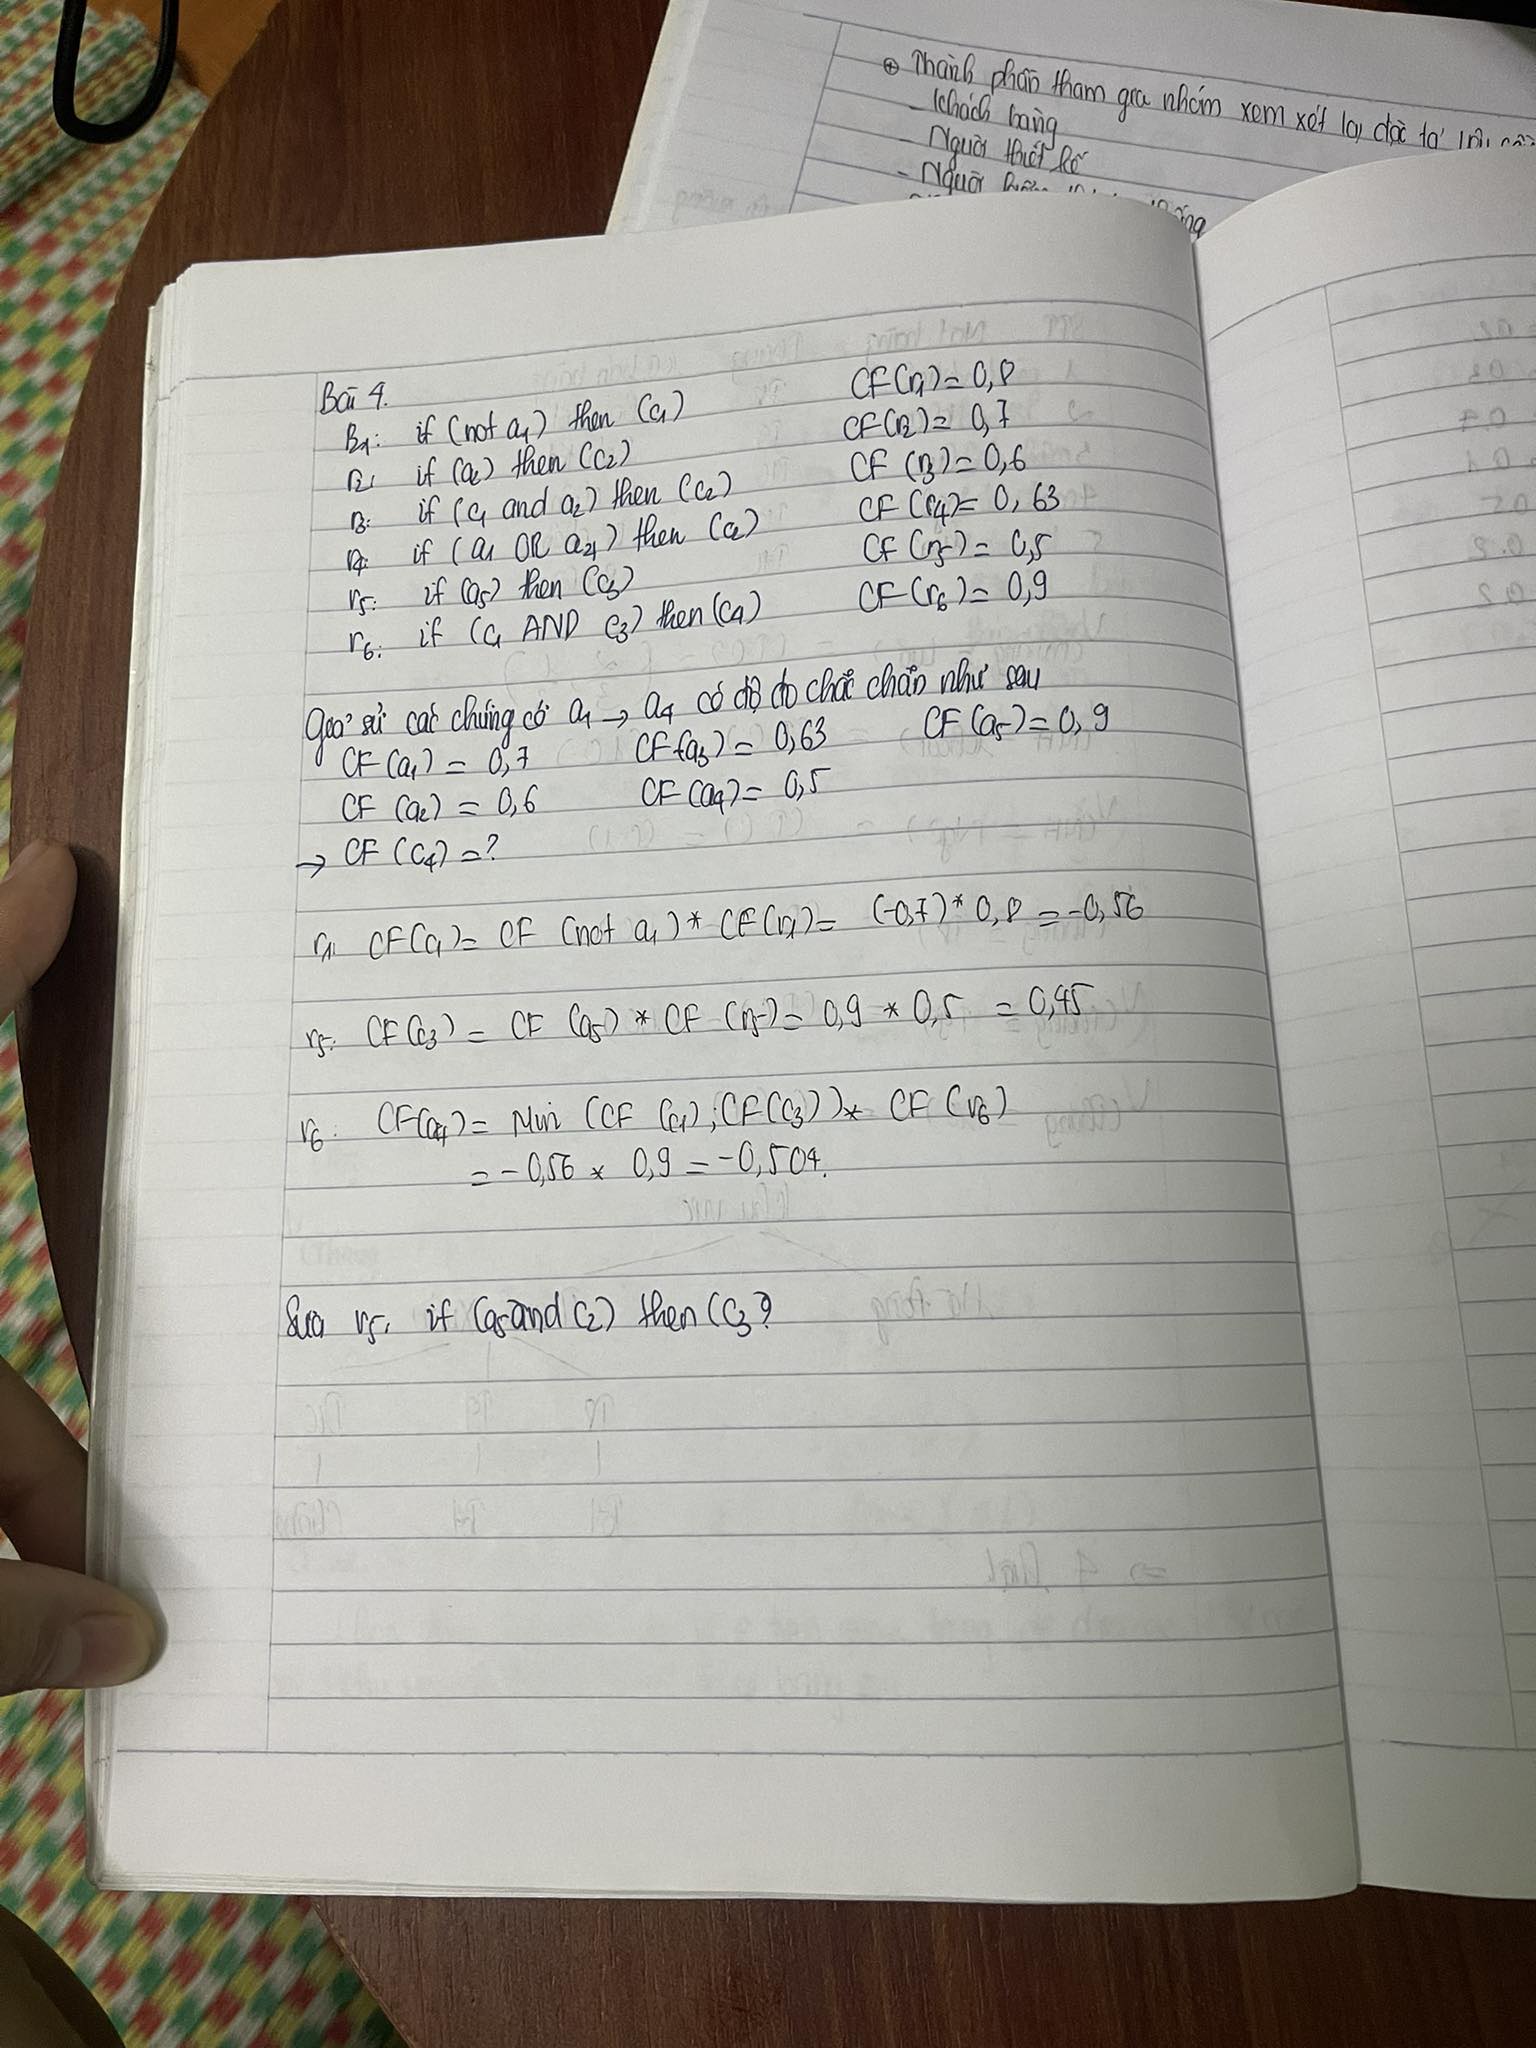 ⊕ Thành phần tham gia nhóm xem xét lại đặc tả
- Khách hàng
- Người thiết kế
- Người
Bài 4.
R1: if (not a1) then (c1) CF(r1) = 0,8
r2: if (a2) then (c2) CF(r2) = 0,7
r3: if (c1 and a2) then (c2) CF (r3) = 0,6
r4: if (a1 OR a4) then (c2) CF (r4) = 0,63
r5: if (a5) then (c3) CF (r5) = 0,5
r6: if (c1 AND c3) then (c4) CF (r6) = 0,9
Giả sử các chứng cớ a1 → a4 có độ đo chắc chắn như sau
CF (a1) = 0,7 CF (a3) = 0,63 CF (a5) = 0,9
CF (a2) = 0,6 CF (a4) = 0,5
→ CF (c4) = ?
r1: CF (c1) = CF (not a1) * CF (r1) = (-0,7) * 0,8 = -0,56
r5: CF (c3) = CF (a5) * CF (r5) = 0,9 * 0,5 = 0,45
r6: CF(c4) = Min (CF (c1) ; CF (c3)) * CF (r6)
= -0,56 * 0,9 = -0,504.
Sửa r5: if (a5 and c2) then (c3 ?